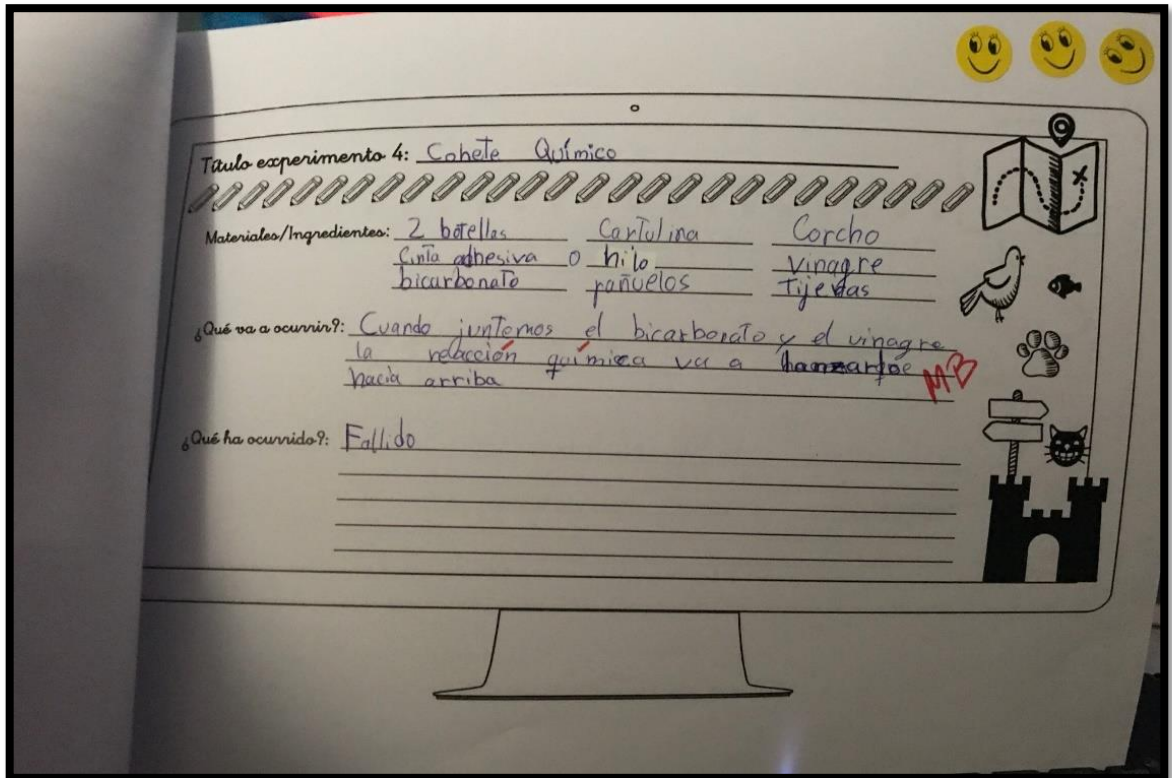 Título experimento 4: Cohete Químico
Materiales/Ingredientes: 2 botellas Cartulina Corcho
Cinta adhesiva o hilo Vinagre
bicarbonato pañuelos Tijeras
¿Qué va a ocurrir?: Cuando juntemos el bicarbonato y el vinagre
la relacción química va a
hacia arriba
MB
¿Qué ha ocurrido?: Fallido